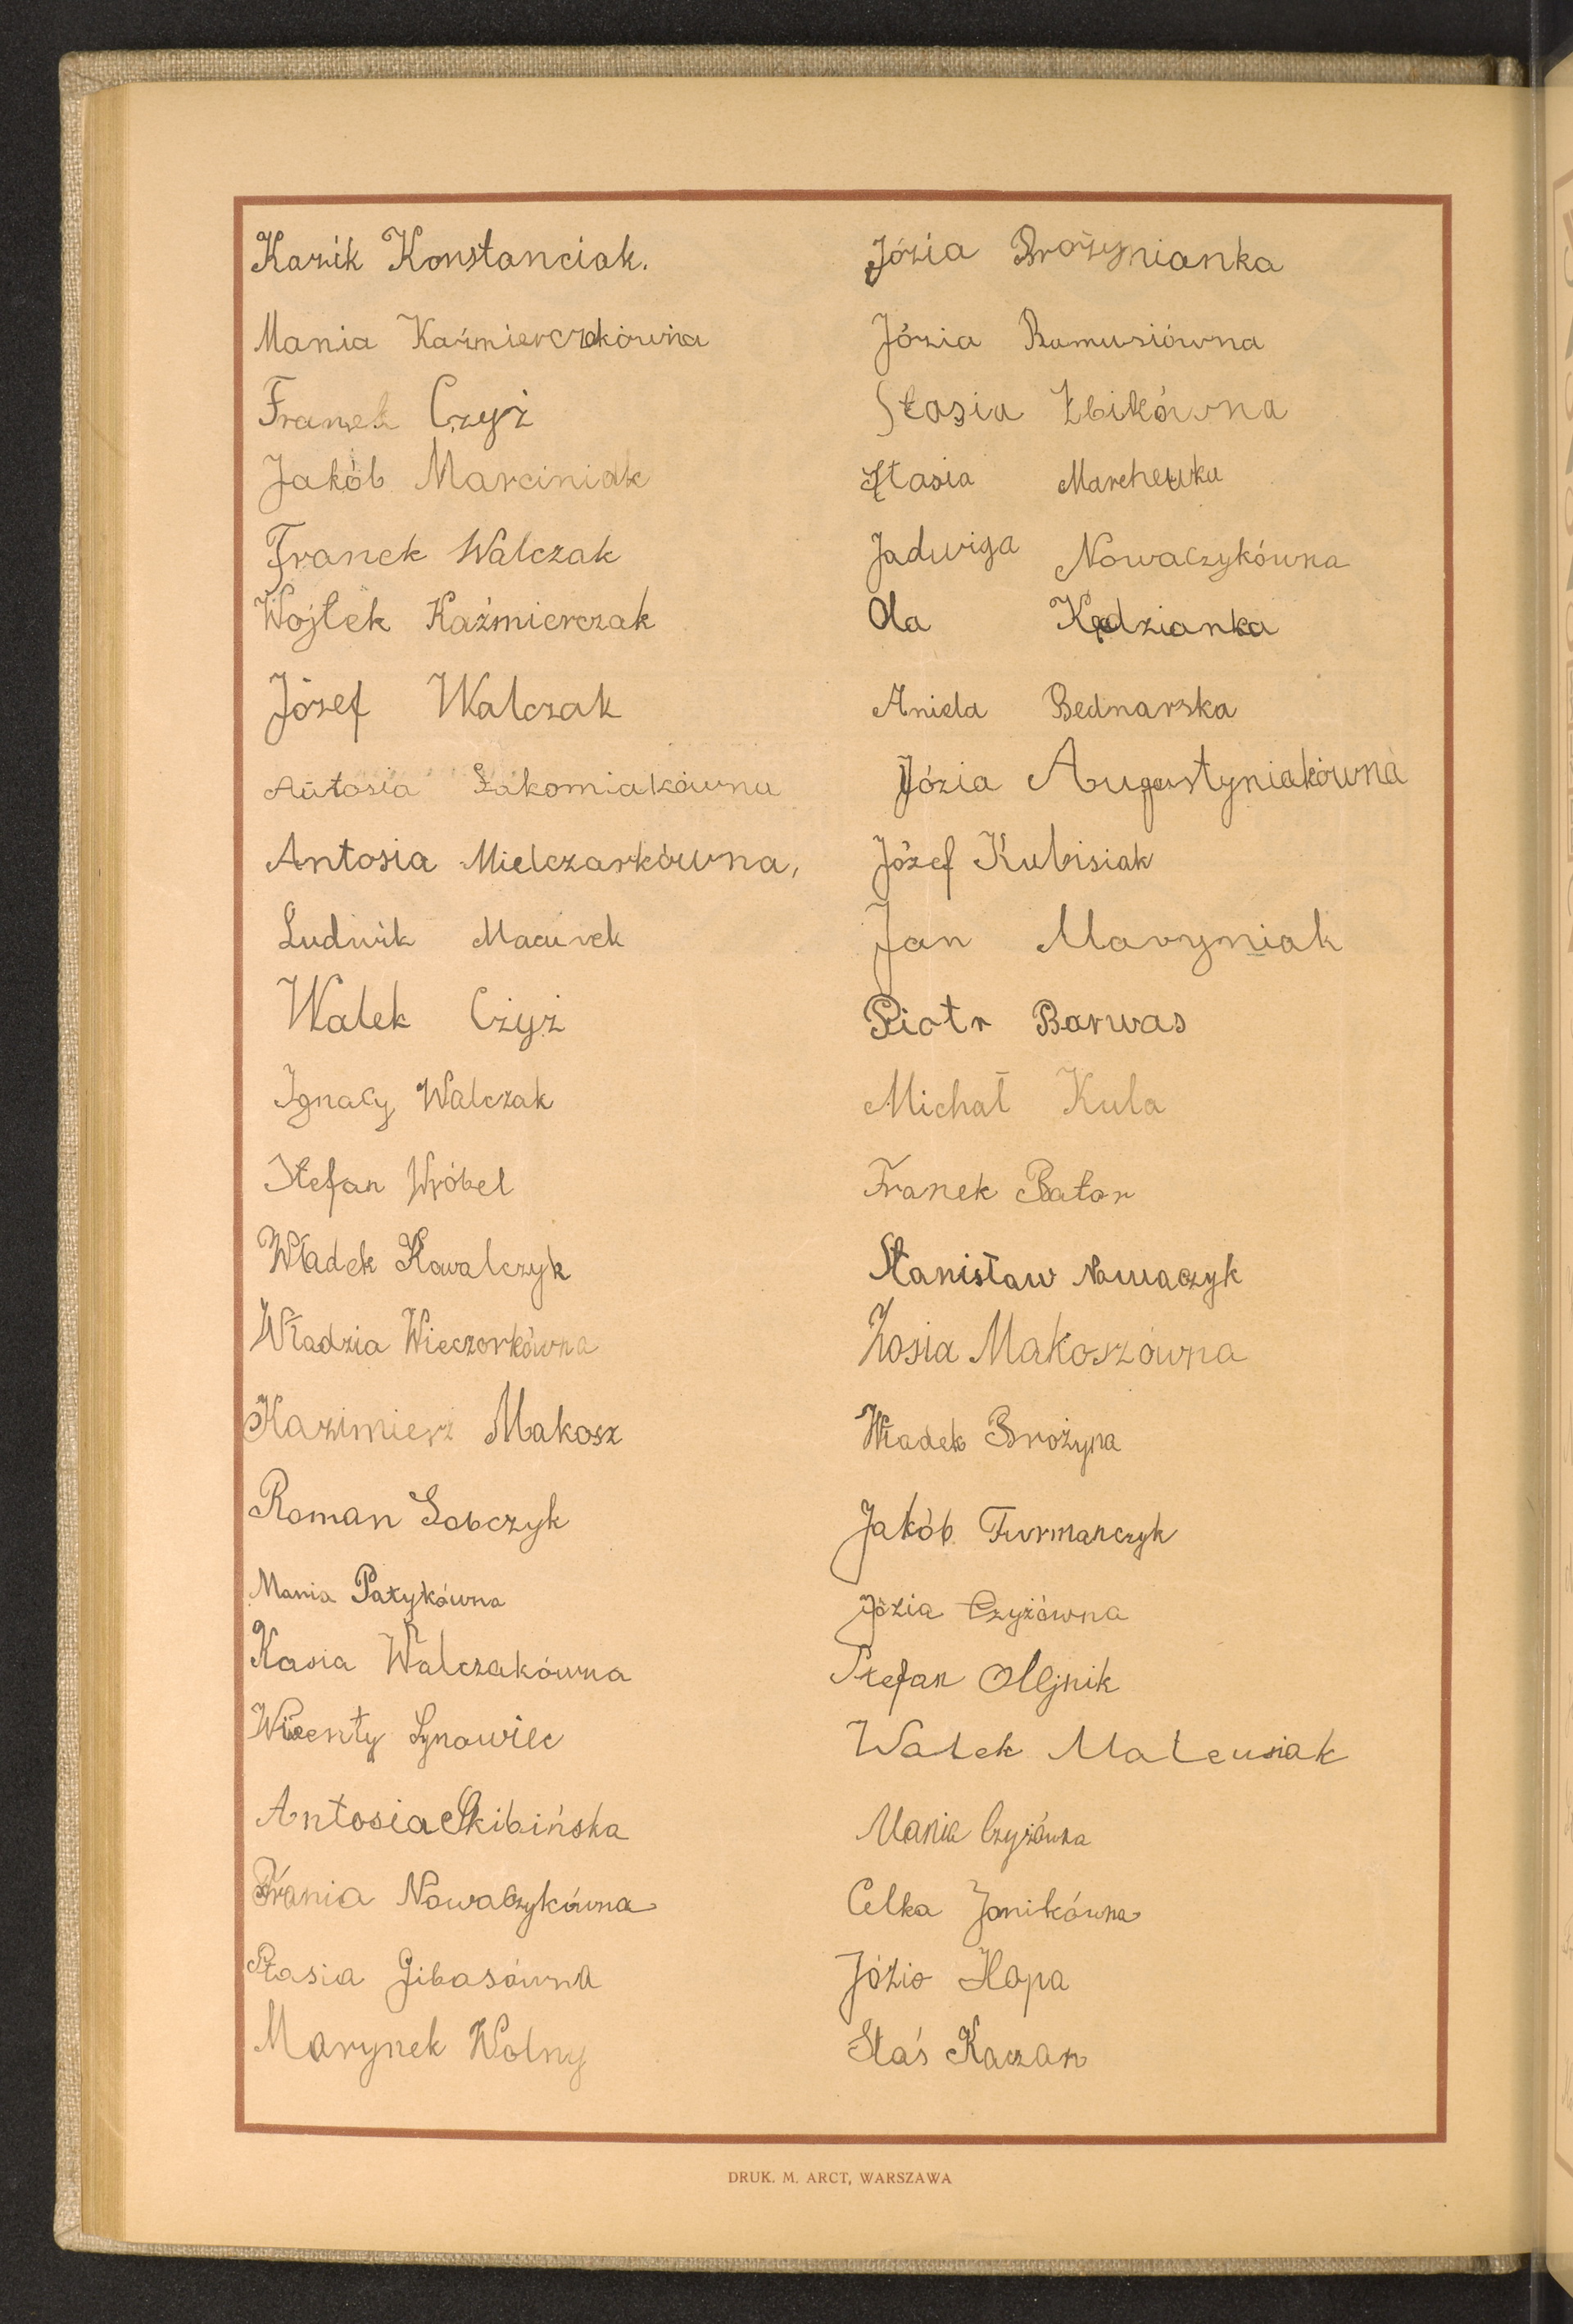 Kazik Konstanciak.
Mania Kaźmierczakówna
Franek Czyż
Jakób Marciniak
Franek Walczak
Wojtek Kaźmierczak
Józef Walczak
Antosia Szkomiakówna
Antosia Mielczarkówna,
Ludwik Macurek
Walek Czyż
Ignacy Walczak
Stefan Wróbel
Władek Kowalczyk
Władzia Wieczorkówna
Kazimierz Makosz
Roman Sobczyk
Mania Patykówna
Kasia Walczakówna
Wicenty Synowiec
Antosia Skibińska
Frania Nowaczykówna
Stasia Gibasówna
Marynek Wolny
Józia Brożynianka
Józia Bamusiówna
Stasia Żbikówna
Stasia Marchewka
Jadwiga Nowaczykówna
Ola Kędzianka
Aniela Bednarska
Józia Augustyniakówna
Józef Kubisiak
Jan Maryniak
Piotr Barwas
Michał Kula
Franek Bator
Stanisław Nowaczyk
Zosia Makoszówna
Władek Brożyna
Jakób Furmańczyk
Józia Czyżówna
Stefan Olejnik
Walek Mateusiak
Mania Czyżówna
Celka Janikówna
Józio Kapa
Staś Kaczan
DRUK. M. ARCT, WARSZAWA